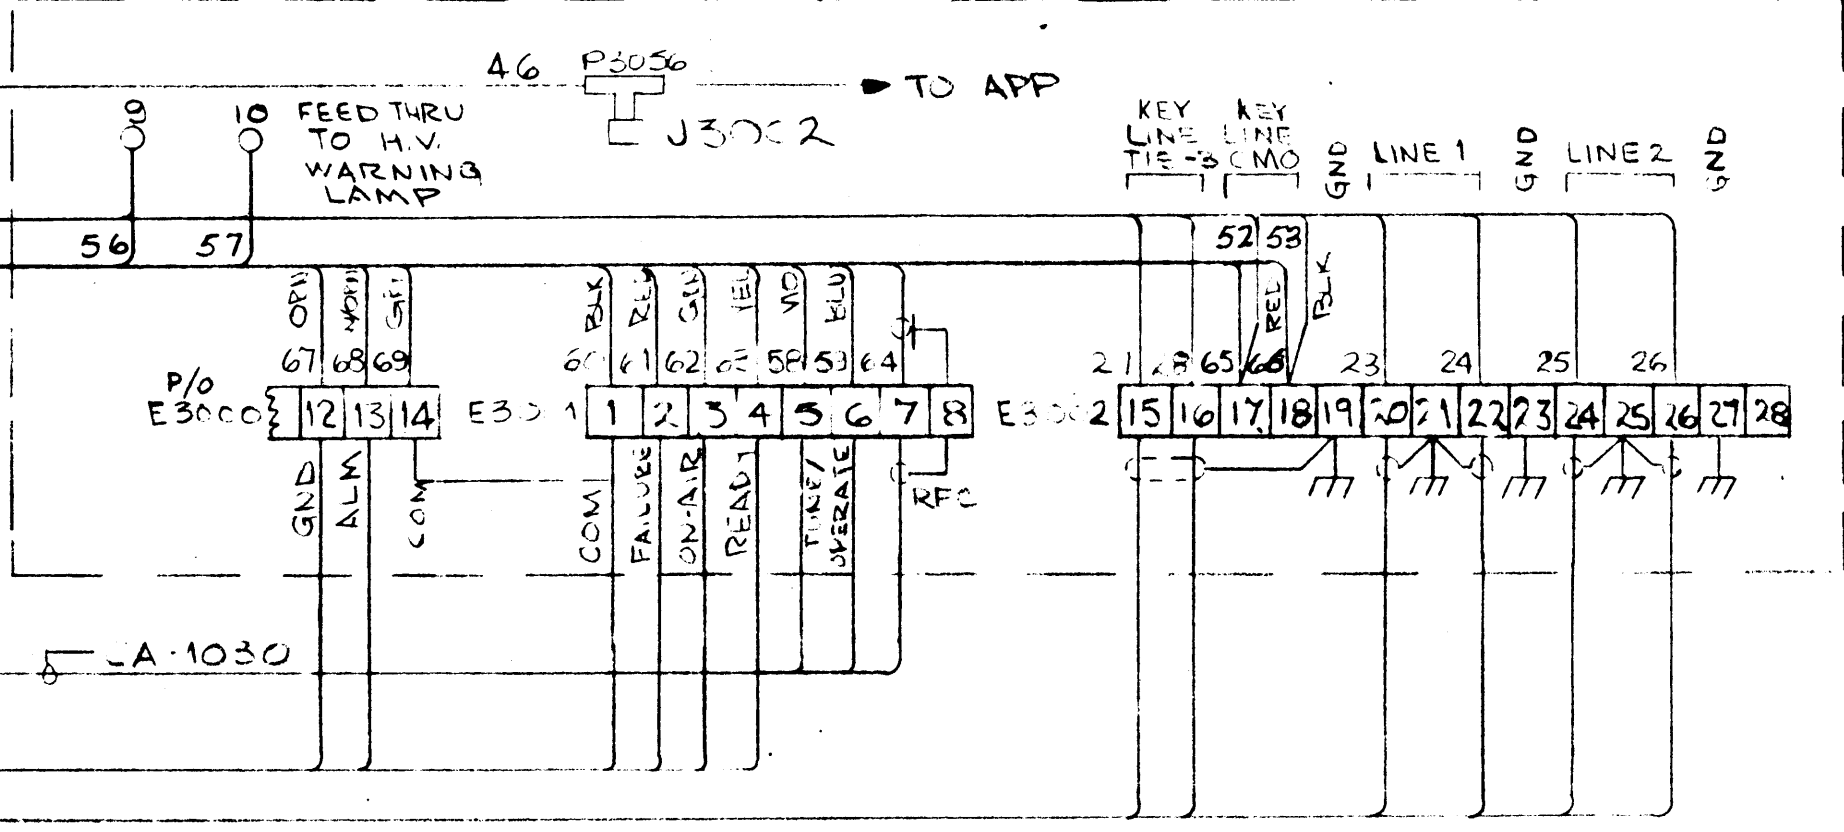 46 P3056
TO APP
9 10 FEED THRU
TO H.V.
WARNING
LAMP
J3002
KEY
LINE
TIE-3
KEY
LINE
CMO
GND
LINE 1
GND
LINE 2
GND
56 57
52 53
ORN GRN
BLK RED GRN YEL VIO BLU
RED BLK
67 68 69
60 61 62 63 58 59 64
28 65 66 23 24 25 26
P/O
E3000 12 13 14
E3001 1 2 3 4 5 6 7 8
E3002 15 16 17 18 19 20 21 22 23 24 25 26 27 28
GND ALM COM
COM FAILURE ON-AIR READY TUNE/
OPERATE
RFC